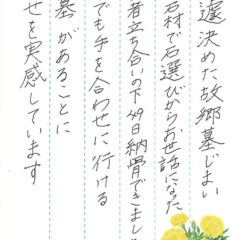 遽決めた故郷墓じまい
石材で石選びからお世話になった
者立ち合いの下49日納骨できまし
でも手を合わせに行ける
墓があることに
せを実感しています